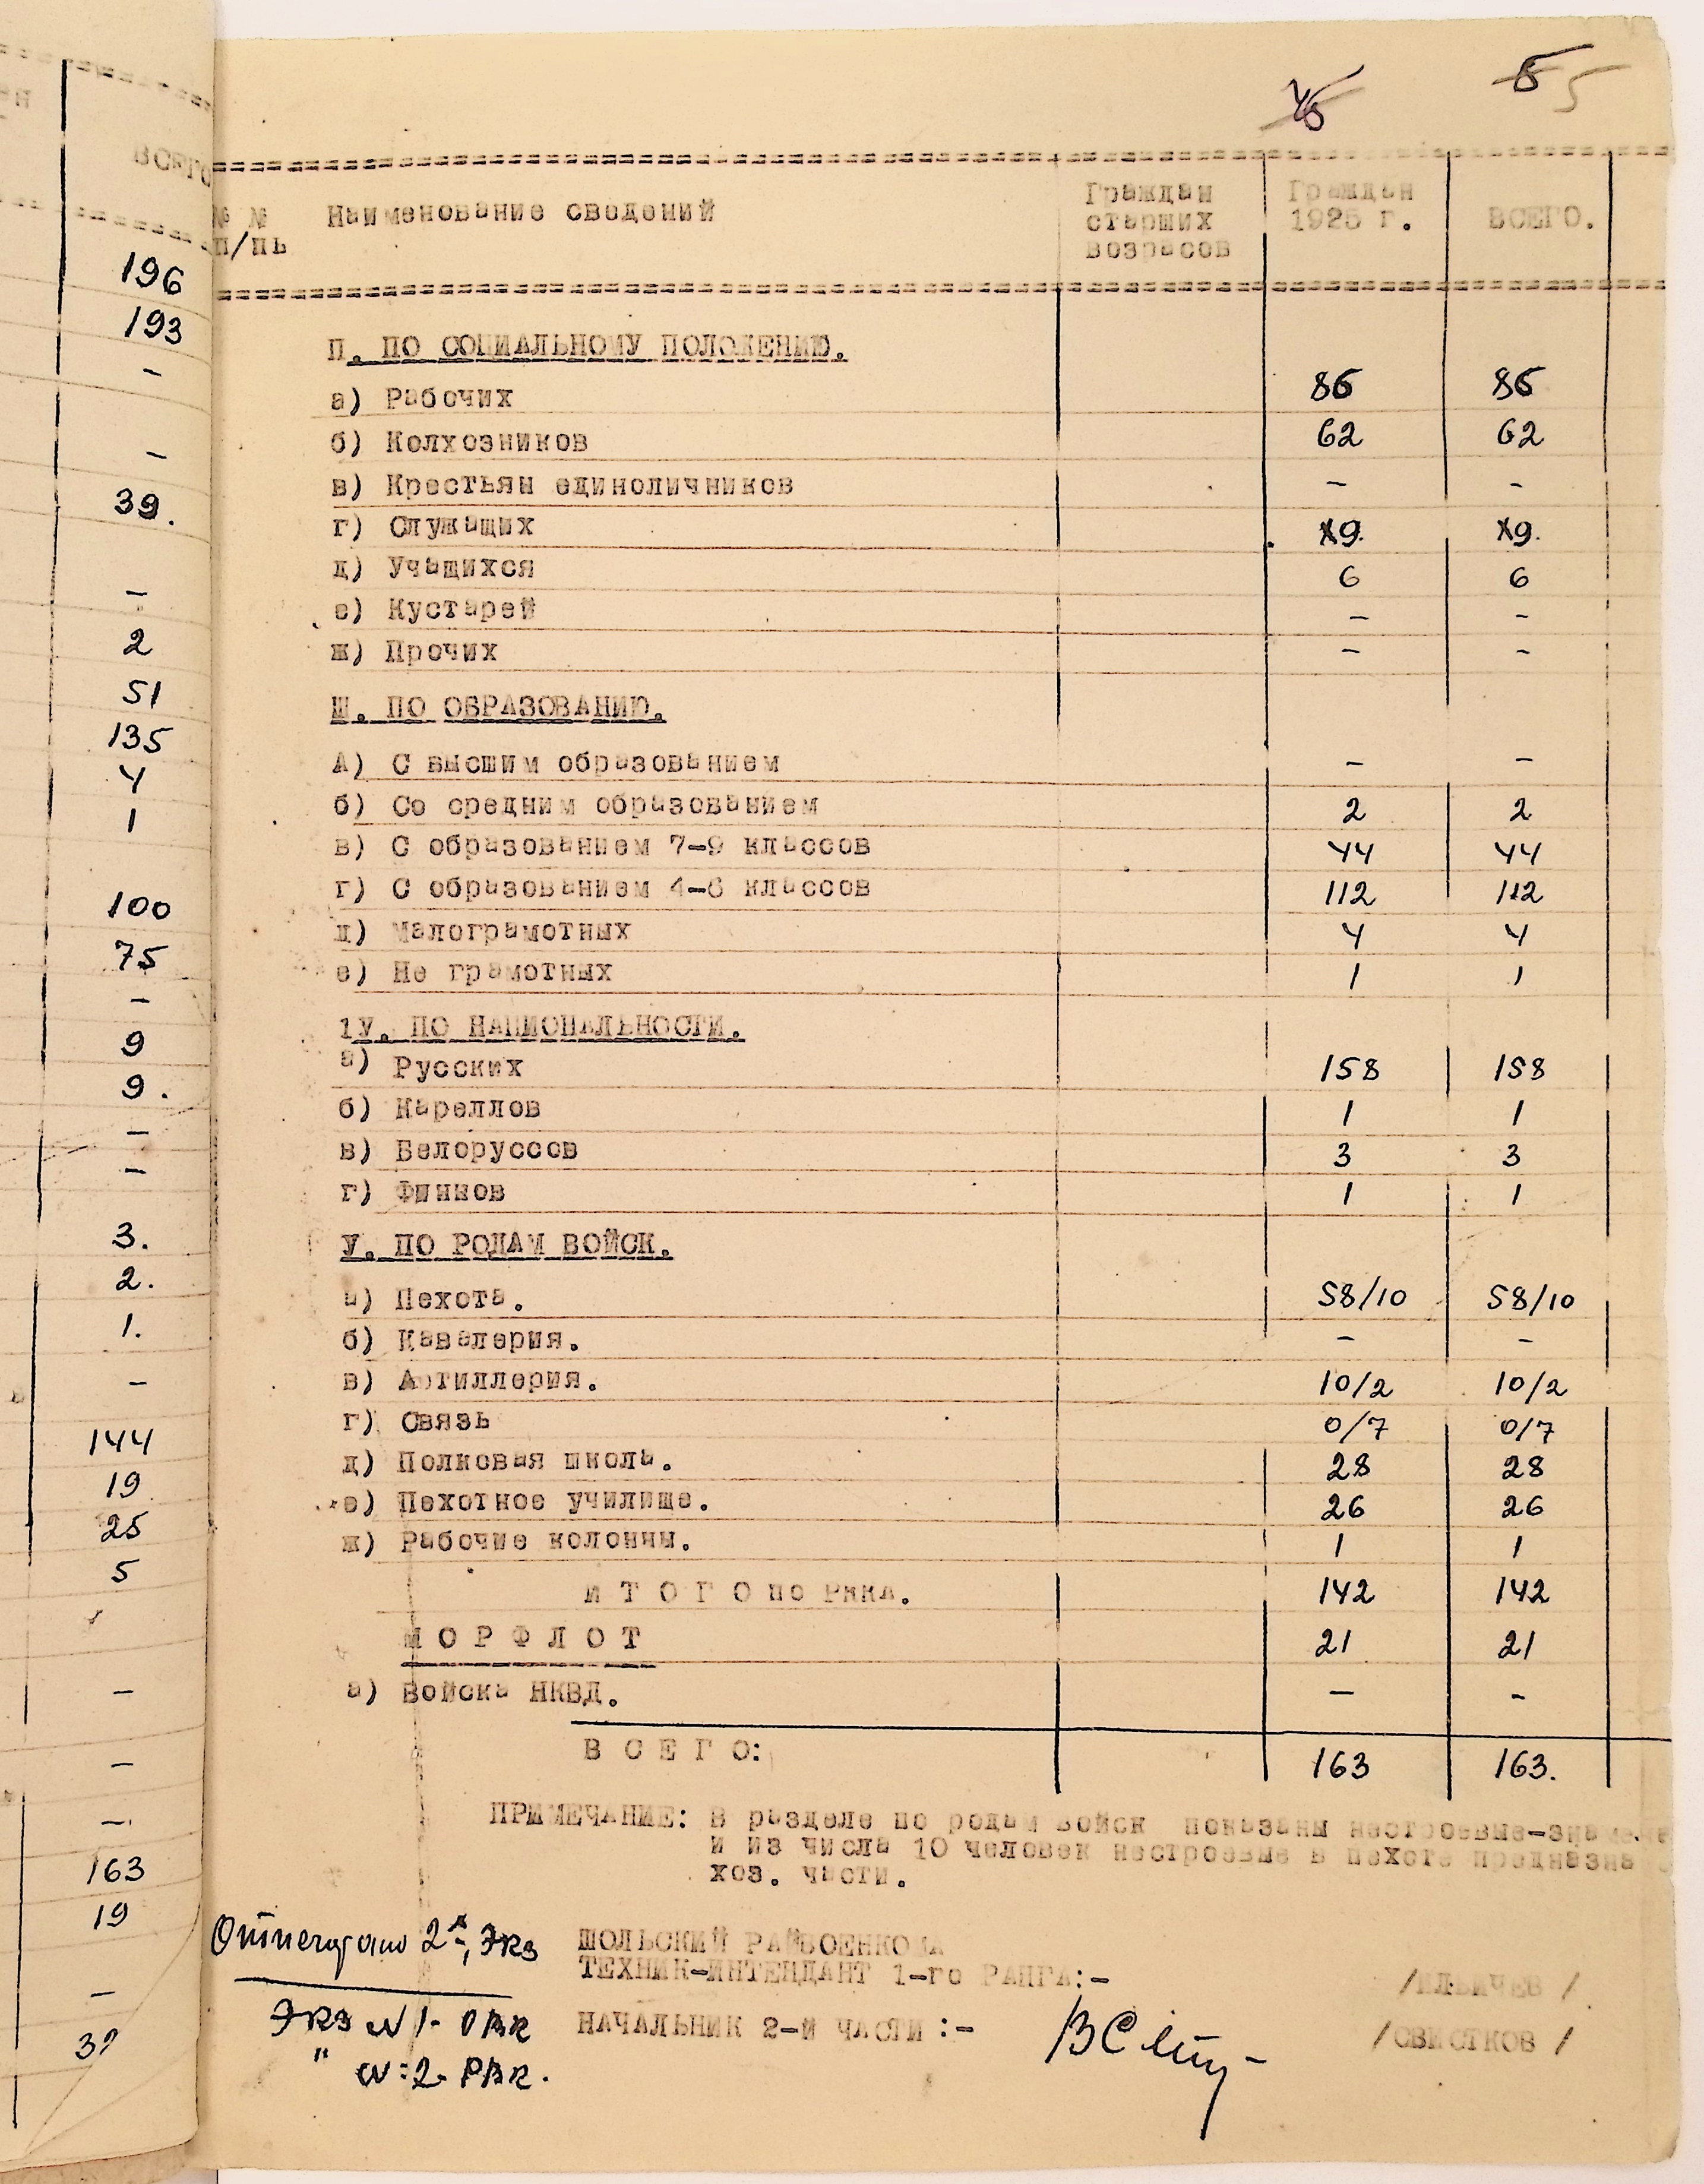 ВСЕГО
196
193
-
-
39.
-
2
51
135
4
1
100
75
-
9
9.
-
-
3.
2.
1.
-
144
19
25
5
-
-
-
163
19
-
5
№ № Наименование сведений Граждан Граждан ВСЕГО.
п/пь старших 1925 г.
возрасов
П. ПО СОЦИАЛЬНОМУ ПОЛОЖЕНИЮ.
а) Рабочих 86 86
б) Колхозников 62 62
в) Крестьян единоличников - -
г) Служащих 9. 9.
д) Учащихся 6 6
е) Кустарей - -
ж) Прочих - -
Ш. ПО ОБРАЗОВАНИЮ.
А) С высшим образованием - -
б) Со средним образованием 2 2
в) С образованием 7-9 классов 44 44
г) С образованием 4-6 классов 112 112
д) Малограмотных 4 4
е) Не грамотных 1 1
1У. ПО НАЦИОНАЛЬНОСТИ.
а) Русских 158 158
б) Кареллов 1 1
в) Белоруссов 3 3
г) Финнов 1 1
У. ПО РОДАМ ВОЙСК.
а) Пехота. 58/10 58/10
б) Кавалерия. - -
в) Артиллерия. 10/2 10/2
г) Связь 0/7 0/7
д) Полковая школа. 28 28
е) Пехотное училище. 26 26
ж) Рабочие колонны. 1 1
И Т О Г О по РККА. 142 142
М О Р Ф Л О Т 21 21
а) Войска НКВД. - -
В С Е Г О: 163 163.
ПРИМЕЧАНИЕ: В разделе по родам войск показаны нестроевые-
и из числа 10 человек нестроевые в пехоте предназна
хоз. части.
Отпечатано 2-, экз
Экз №1- ОВК
" №:2- РВК.
ШОЛЬСКИЙ РАЙВОЕНКОМ
ТЕХНИК-ИНТЕНДАНТ 1-го РАНГА:- /ИЛЬИЧЕВ/.
НАЧАЛЬНИК 2-й ЧАСТИ :- /СВИСТКОВ/